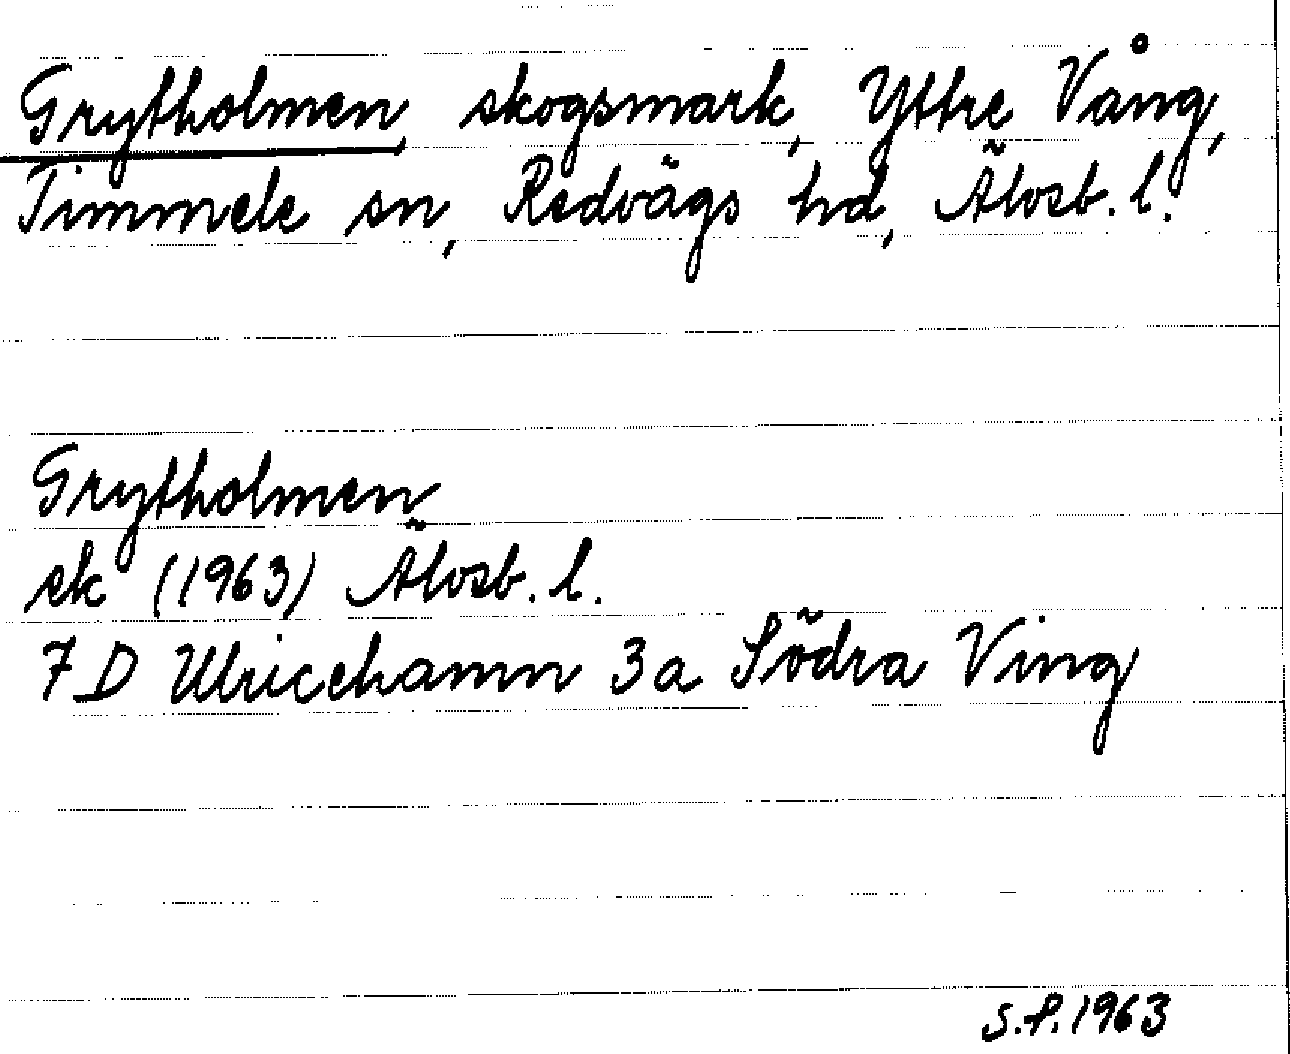 Grytholmen, skogsmark, Yttre Vång,
Timmele sn, Redvägs hd, Älvsb. l.
Grytholmen
ek (1963) Älvsb. l.
7D Ulricehamn 3a Södra Ving
S.P. 1963